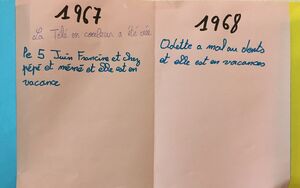 1967
La Télé en couleur a été créé
le 5 Juin Francine et chez
pépé et mémé et elle est en
vacance
1968
Odette a mal au dents
et elle est en vacances